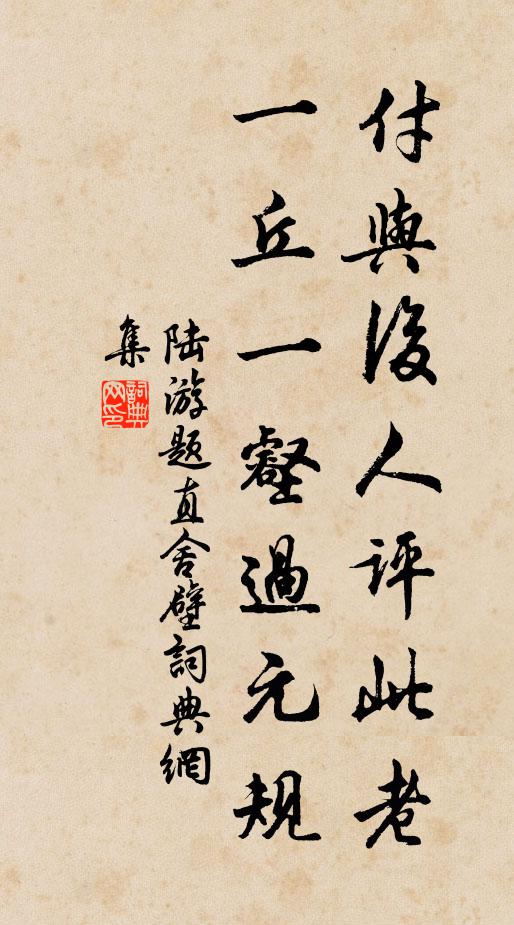 付與後人評此老
一丘一壑過元規
陸游题直舍壁詞典網
集
詞典
网印